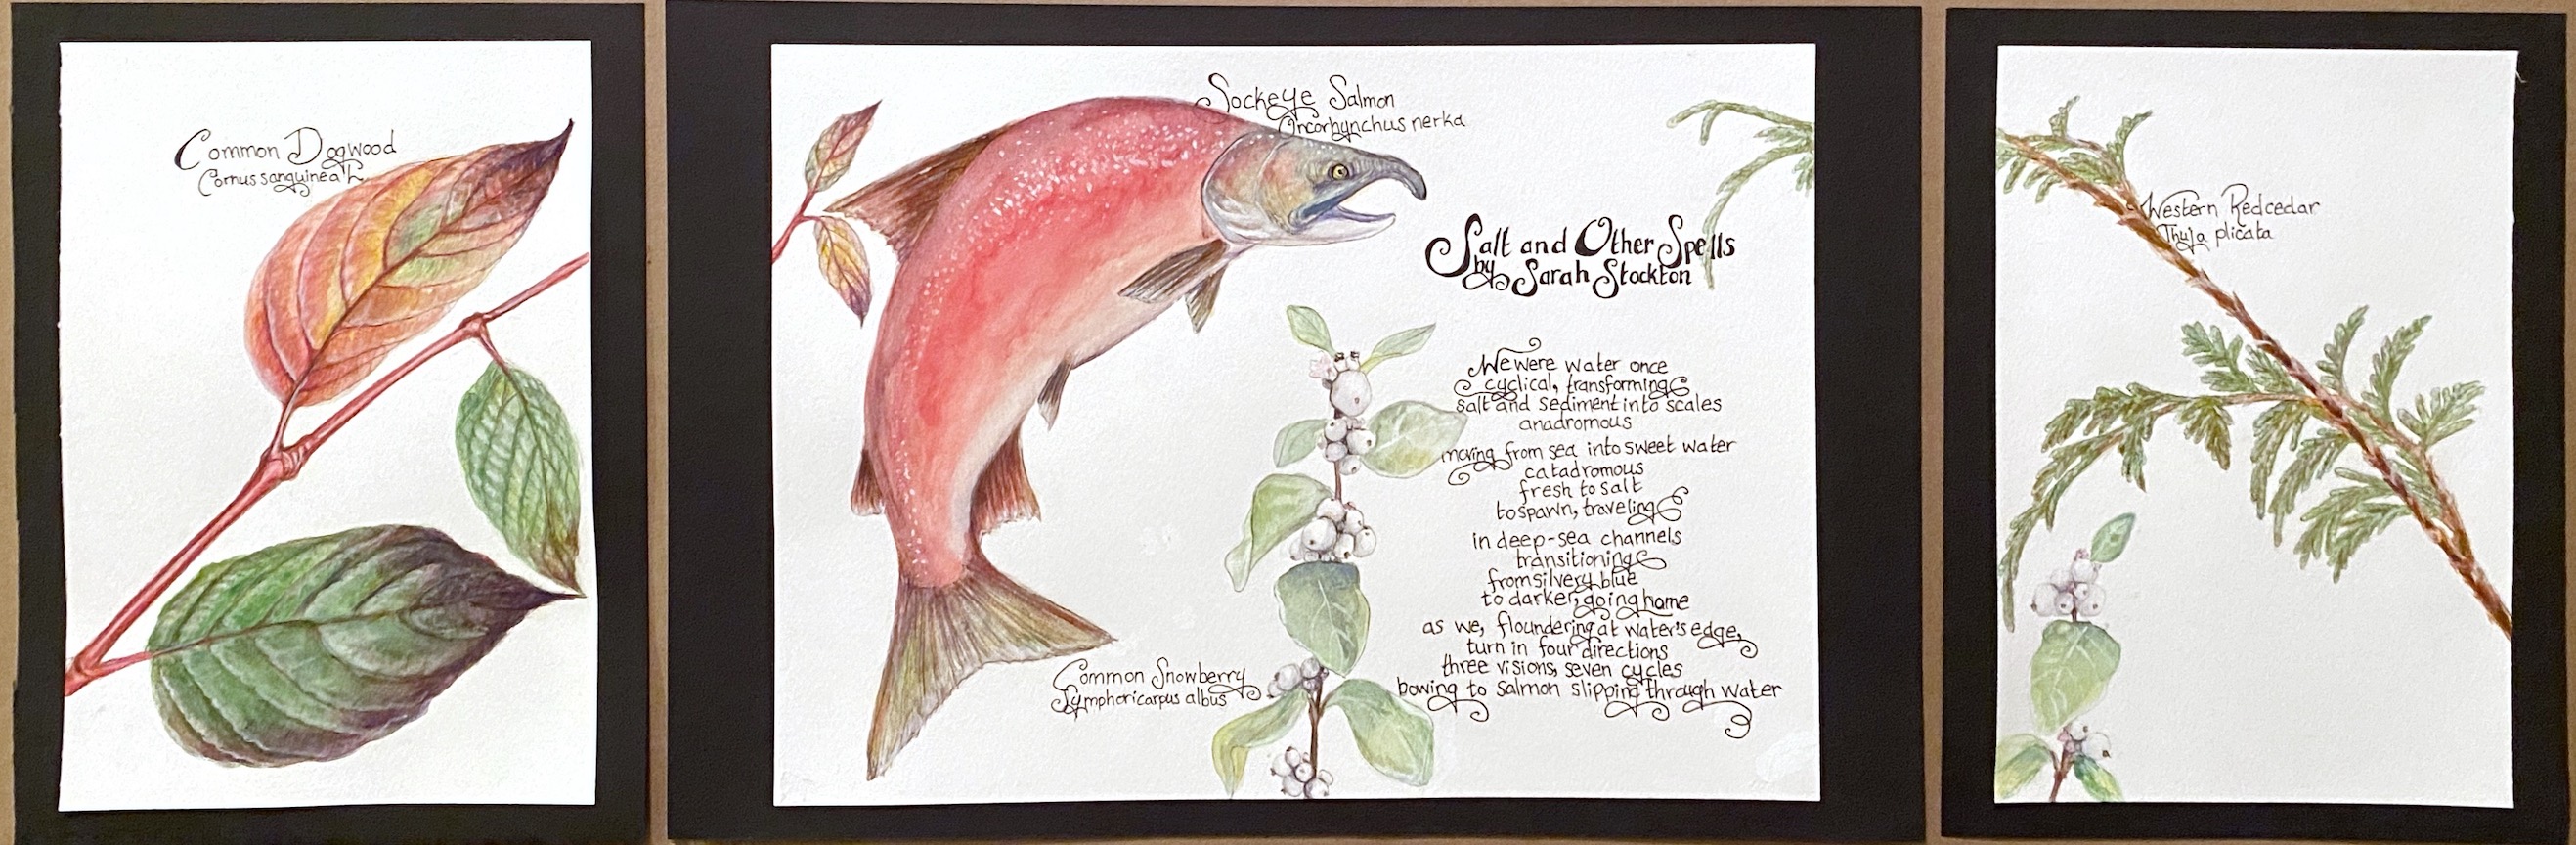 Common Dogwood
Cornus sanguinea L.
Sockeye Salmon
Oncorhynchus nerka
Salt and Other Spells
by Sarah Stockton
We were water once
cyclical, transforming
salt and sediment into scales
anadromous
moving from sea into sweet water
catadromous
fresh to salt
to spawn, traveling
in deep-sea channels
transitioning
from silvery blue
to darker, going home
as we, floundering at water's edge,
turn in four directions
three visions, seven cycles
bowing to salmon slipping through water
Common Snowberry
Symphoricarpus albus
Western Redcedar
Thuja plicata